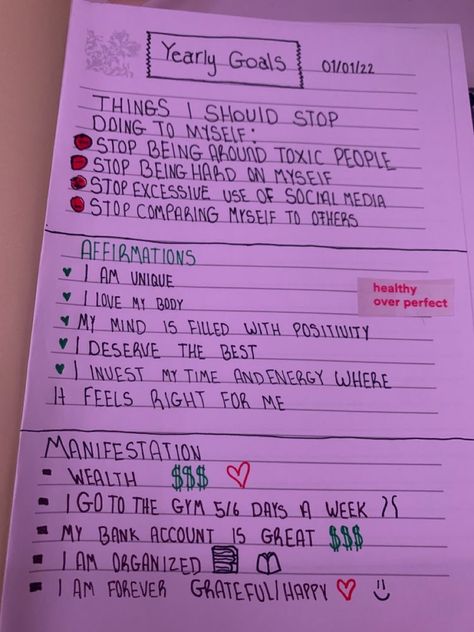 Yearly Goals
01/01/22
THINGS I SHOULD STOP
DOING TO MYSELF:
STOP BEING AROUND TOXIC PEOPLE
STOP BEING HARD ON MYSELF
STOP EXCESSIVE USE OF SOCIAL MEDIA
STOP COMPARING MYSELF TO OTHERS
AFFIRMATIONS
I AM UNIQUE
I LOVE MY BODY
healthy
over perfect
MY MIND IS FILLED WITH POSITIVITY
I DESERVE THE BEST
I INVEST MY TIME AND ENERGY WHERE
IT FEELS RIGHT FOR ME
MANIFESTATION
WEALTH $$$
I GO TO THE GYM 5/6 DAYS A WEEK
MY BANK ACCOUNT IS GREAT $$$
I AM ORGANIZED
I AM FOREVER GRATEFUL/HAPPY